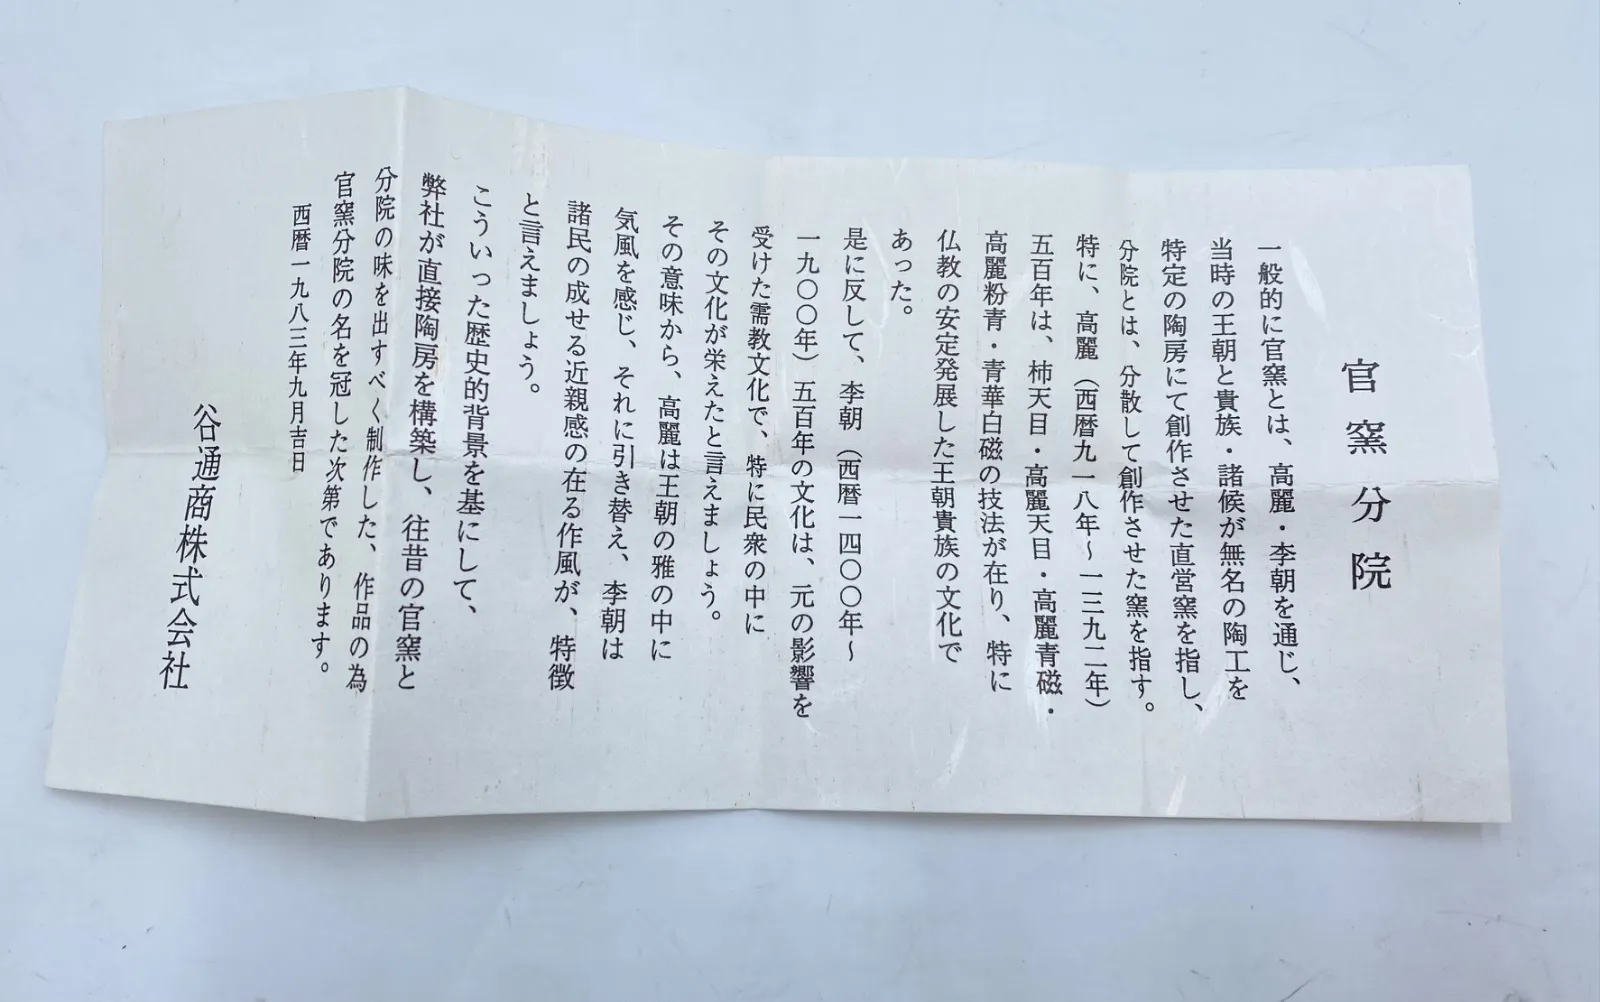 官窯分院
一般的に官窯とは、高麗・李朝を通じ、
当時の王朝と貴族・諸候が無名の陶工を
特定の陶房にて創作させた直営窯を指し、
分院とは、分散して創作させた窯を指す。
特に、高麗（西暦九一八年～一三九二年）
五百年は、柿天目・高麗天目・高麗青磁・
高麗粉青・青華白磁の技法が在り、特に
仏教の安定発展した王朝貴族の文化で
あった。
是に反して、李朝（西暦一四〇〇年～
一九〇〇年）五百年の文化は、元の影響を
受けた需教文化で、特に民衆の中に
その文化が栄えたと言えましょう。
その意味から、高麗は王朝の雅の中に
気風を感じ、それに引き替え、李朝は
諸民の成せる近親感の在る作風が、特徴
と言えましょう。
こういった歴史的背景を基にして、
弊社が直接陶房を構築し、往昔の官窯と
分院の味を出すべく制作した、作品の為
官窯分院の名を冠した次第であります。
西暦一九八三年九月吉日
谷通商株式会社